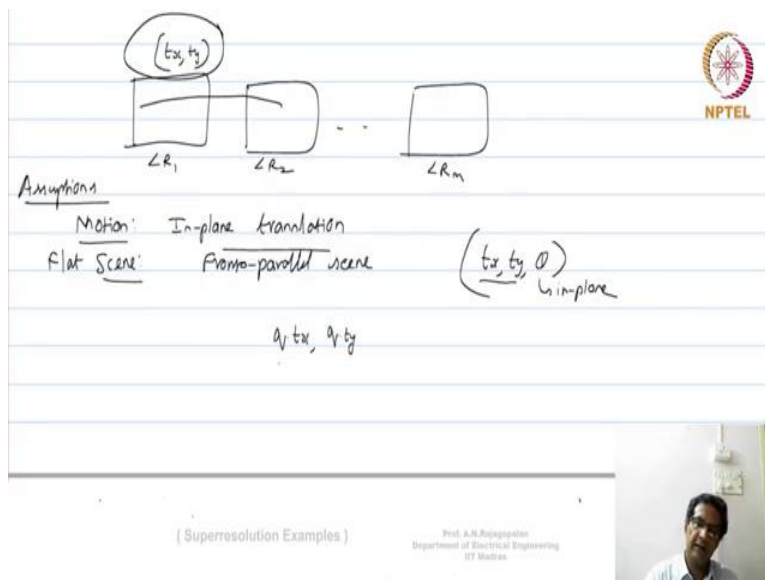 (tx, ty)
NPTEL
LR₁ LR₂ .. LRₘ
Assumptions
Motion: In-plane translation
Flat Scene: Fronto-parallel scene (tx, ty, θ)
↳ in-plane
q tx, q ty
( Superresolution Examples )
Prof. A.N.Rajagopalan
Department of Electrical Engineering
IIT Madras